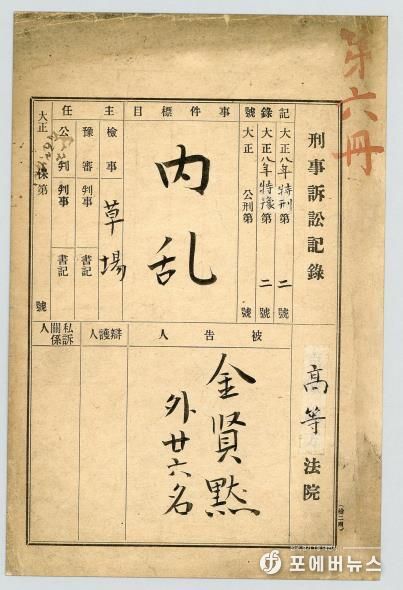 第六冊
刑事訴訟記錄
高等法院
記錄號
大正八年特刑第二號
大正八年特豫第二號
大正 公刑第 號
事件標目
內乱
主任
檢事 草場
豫審判事 書記
公判判事 書記
大正 保第 號
被告人
金賢黙
外廿六名
辯護人
私訴關係人
포에버뉴스